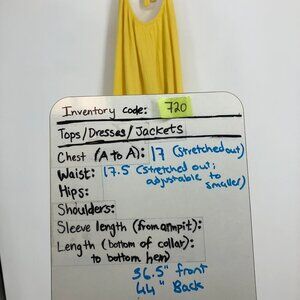 Inventory Code: 720
Tops/Dresses/Jackets
Chest (A to A): 17 (stretched out)
Waist: 17.5 (stretched out; adjustable to smaller)
Hips:
Shoulders:
Sleeve length (from armpit):
Length (bottom of collar):
to bottom hem)
36.5" front
44" Back